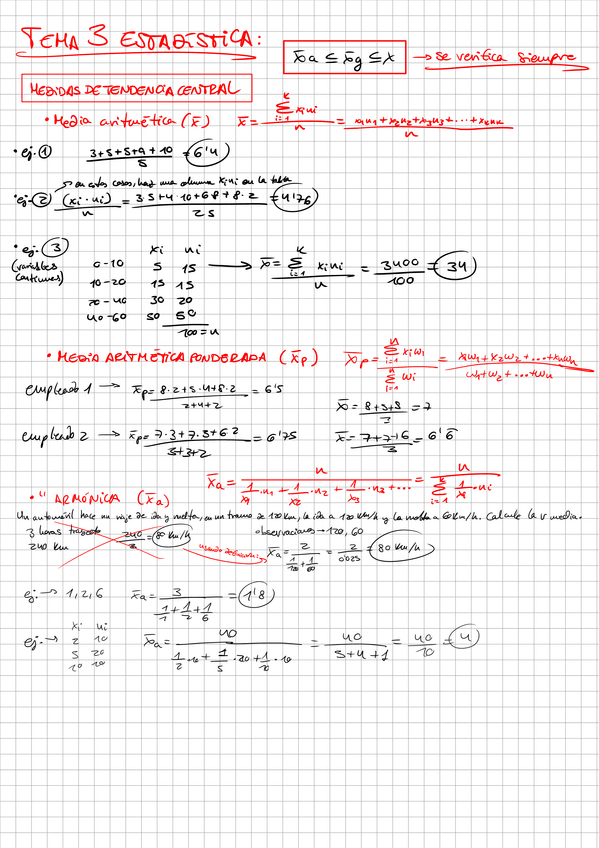 TEMA 3 ESTADÍSTICA:
x̄a ≤ x̄g ≤ x̄ → se verifica siempre
MEDIDAS DE TENDENCIA CENTRAL
• Media aritmética (x̄) x̄ = Σ(i=1, k) xini / n = x1n1 + x2n2 + x3n3 + ... + xknk / n
• ej. ① 3+5+5+9+10 / 5 = 6'4
→ en estos casos, haz una columna xini en la tabla
• ej. ② (xi · ni) / n = 3·5+4·10+6·8+8·2 / 25 = 4'76
• ej. ③ xi ni
(variables continuas) 0-10 5 15 → x̄ = Σ(i=1, k) xini / n = 3400 / 100 = 34
10-20 15 15
20-40 30 20
40-60 50 50
100 = n
• MEDIA ARITMÉTICA PONDERADA (x̄p) x̄p = Σ(i=1, n) xiwi / Σ(i=1, n) wi = x1w1 + x2w2 + ... + xnwn / w1 + w2 + ... + wn
empleado 1 → x̄p = 8·2+5·4+8·2 / 2+4+2 = 6'5 x̄ = 8+5+8 / 3 = 7
empleado 2 → x̄p = 7·3+7·3+6·2 / 3+3+2 = 6'75 x̄ = 7+7+6 / 3 = 6'6
• " ARMÓNICA (x̄a) x̄a = n / 1/x1 · n1 + 1/x2 · n2 + 1/x3 · n3 + ... = n / Σ(i=1, k) 1/xi · ni
Un automóvil hace un viaje de ida y vuelta, en un tramo de 120 km, la ida a 120 km/h y la vuelta a 60 km/h. Calcule la v media.
3 horas trayecto 240 / 3 = 80 km/h observaciones → 120, 60
240 km x̄a = 2 / 1/120 + 1/60 = 2 / 0'025 = 80 km/h
ej. → 1, 2, 6 x̄a = 3 / 1/1 + 1/2 + 1/6 = 1'8
xi ni
ej. → 2 10 x̄a = 40 / 1/2 · 10 + 1/5 · 20 + 1/10 · 10 = 40 / 5+4+1 = 40 / 10 = 4
5 20
10 10